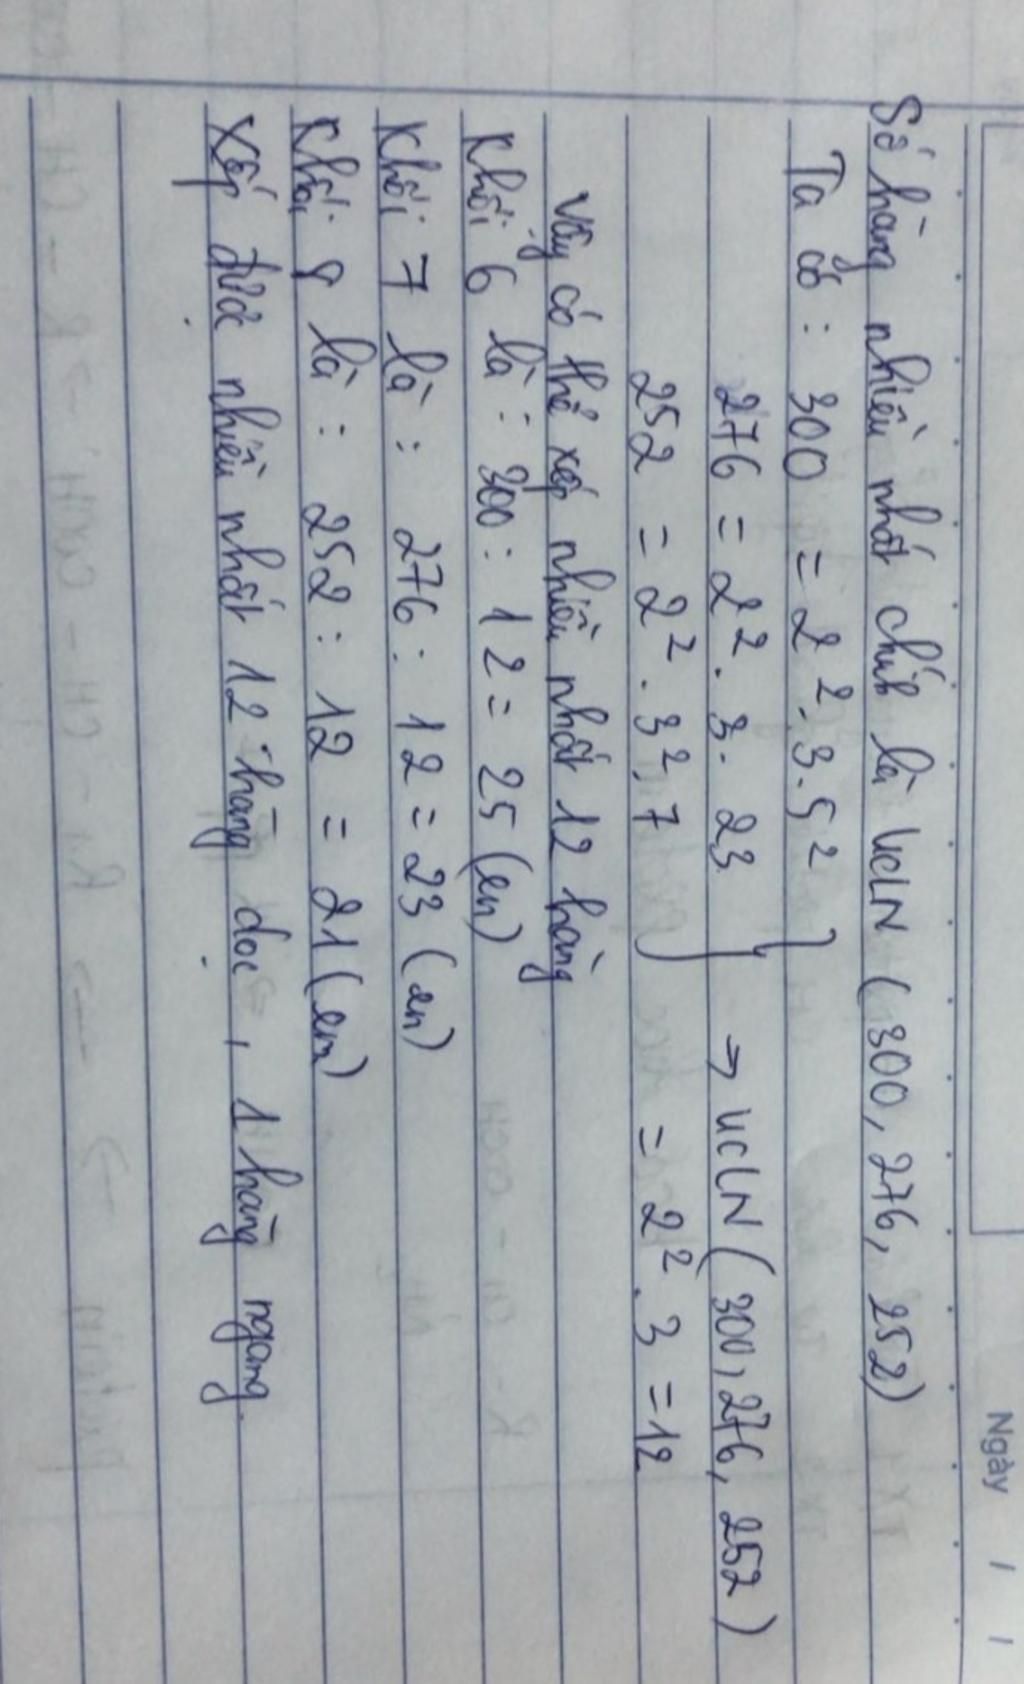 Ngày / /
Số hàng nhiều nhất chính là ƯCLN (300, 276, 252)
Ta có : 300 = 2². 3. 5²
276 = 2². 3. 23 → ƯCLN (300, 276, 252)
252 = 2². 3². 7 = 2². 3 = 12
Vậy có thể xếp nhiều nhất 12 hàng
Khối 6 là : 300 : 12 = 25 (em)
Khối 7 là : 276 : 12 = 23 (em)
Khối 8 là : 252 : 12 = 21 (em)
Xếp được nhiều nhất 12 hàng dọc, 1 hàng ngang.